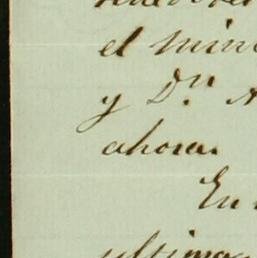 el min
y Dn. A
ahora.
En
ultima